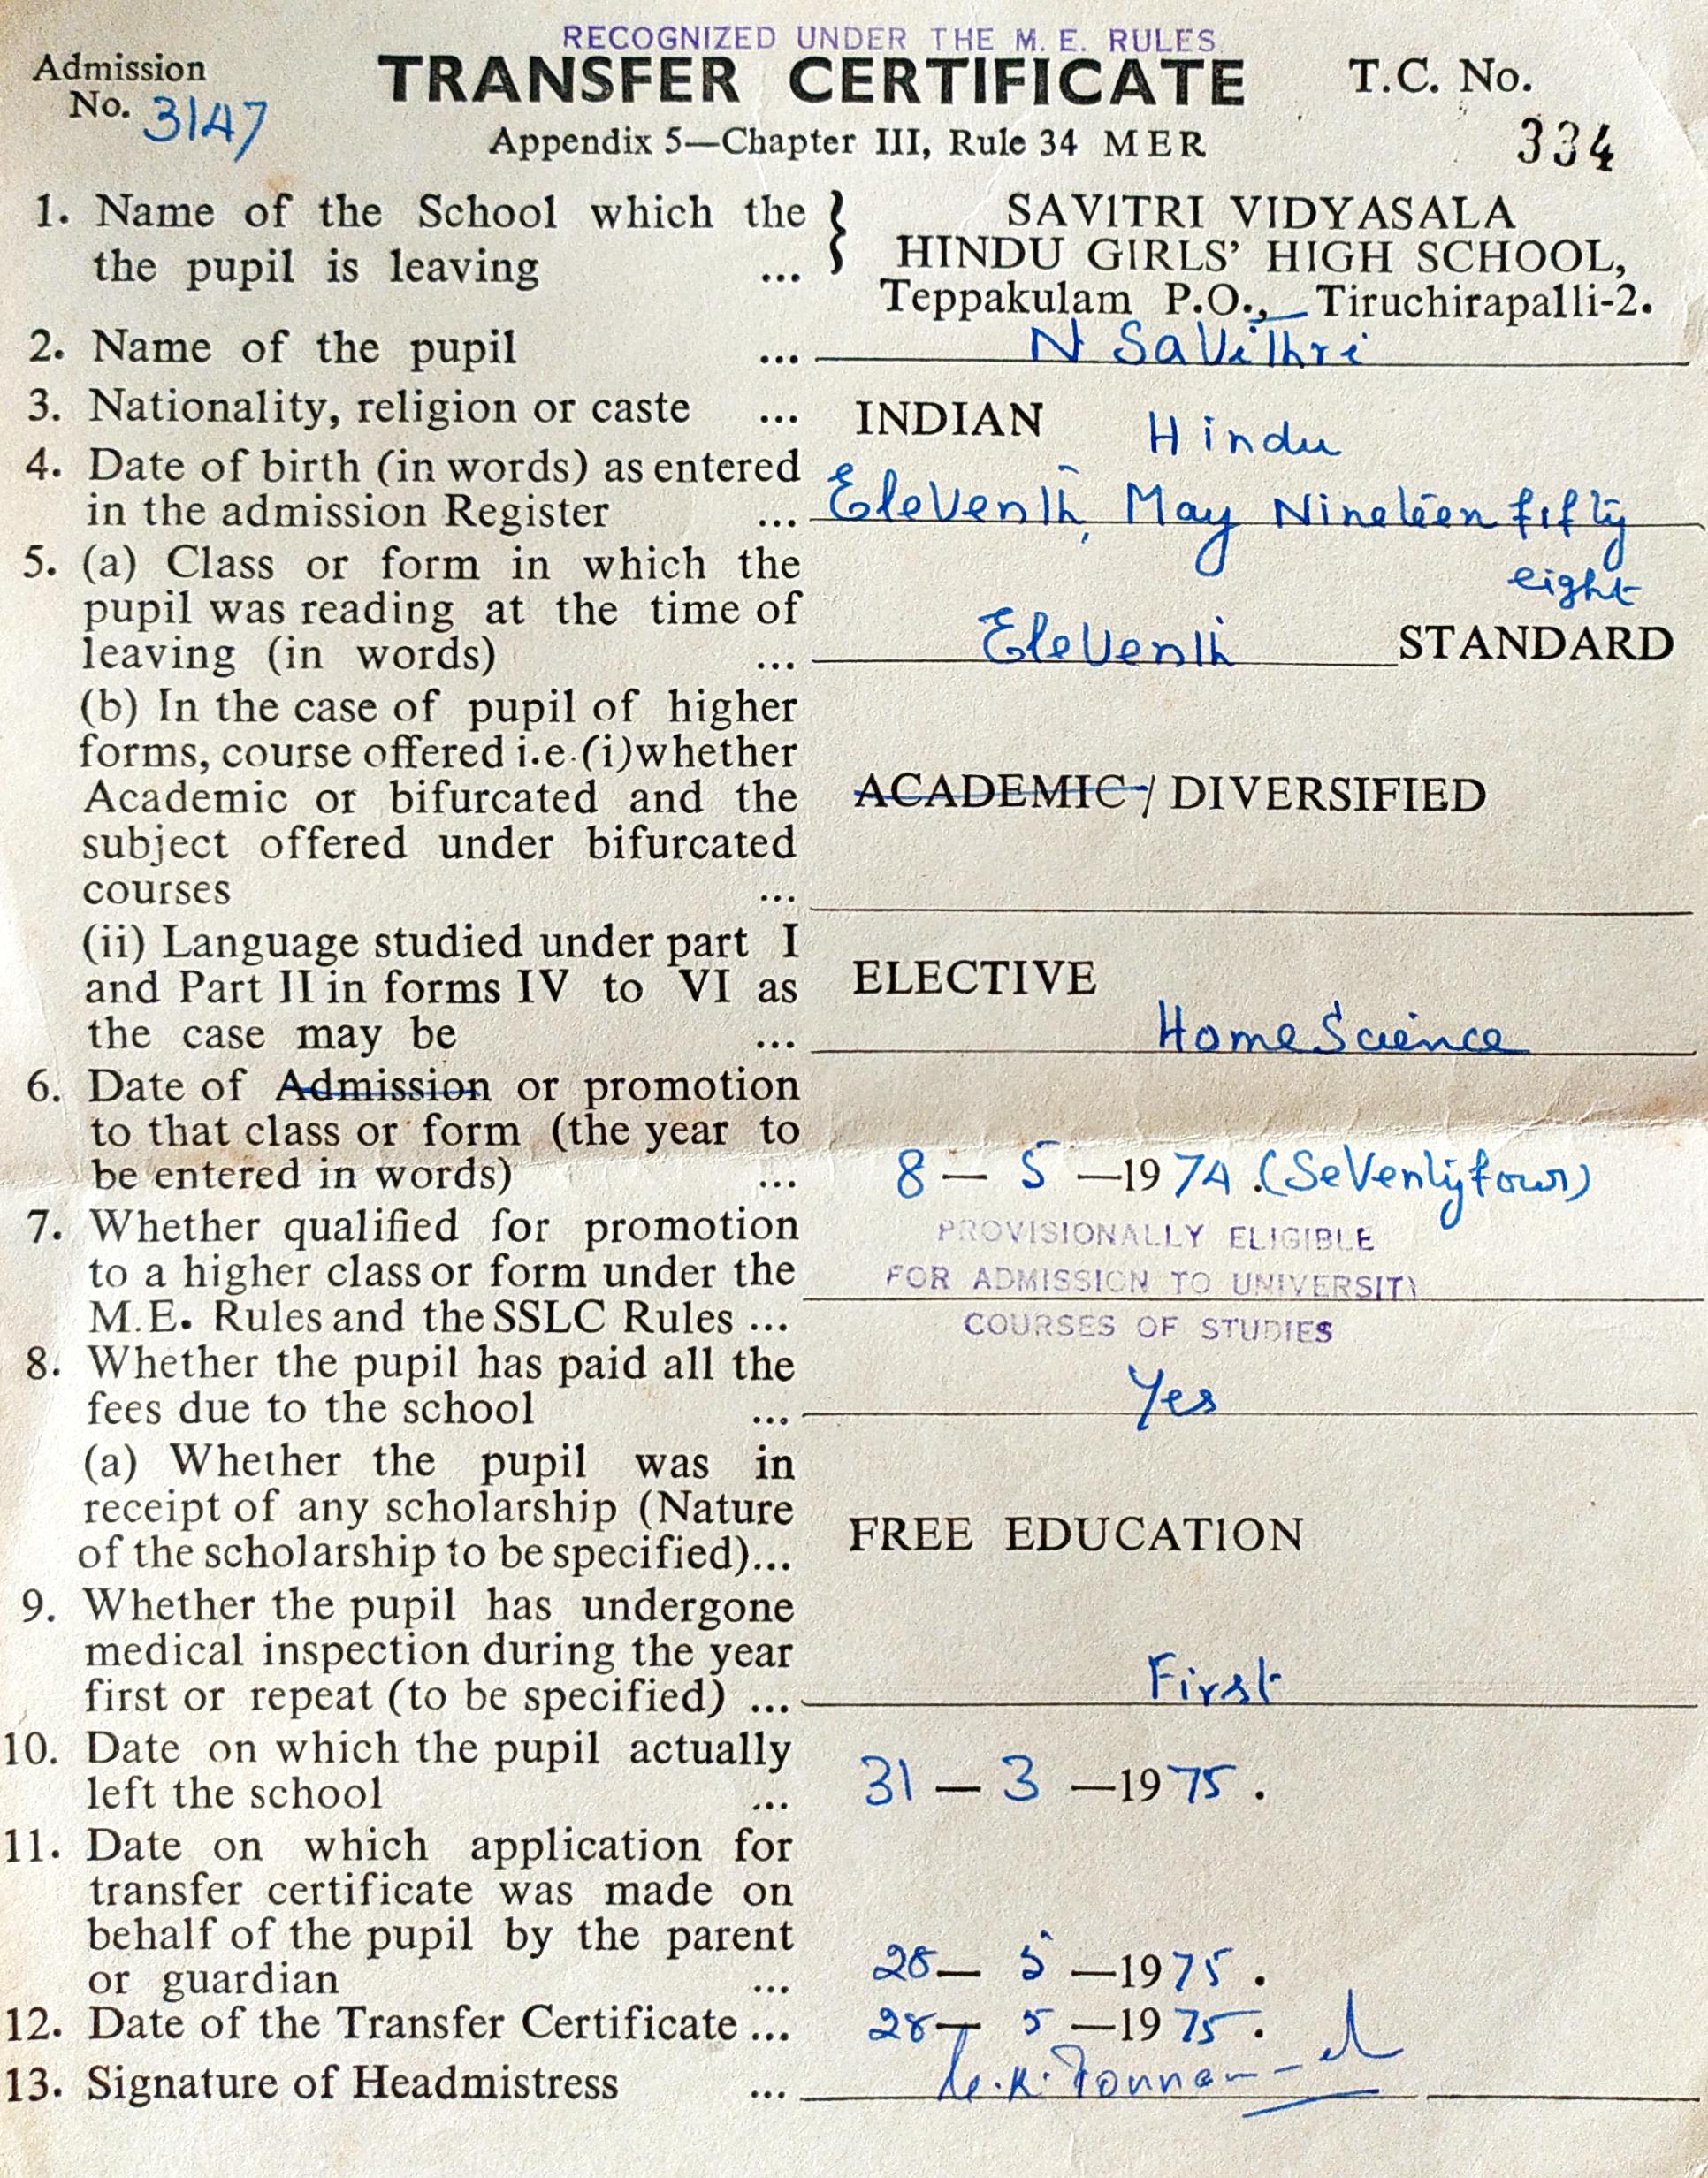 RECOGNIZED UNDER THE M. E. RULES
Admission
No. 3147
TRANSFER CERTIFICATE
T.C. No.
334
Appendix 5—Chapter III, Rule 34 MER
1. Name of the School which the
the pupil is leaving ...
SAVITRI VIDYASALA
HINDU GIRLS' HIGH SCHOOL,
Teppakulam P.O., Tiruchirapalli-2.
2. Name of the pupil ... N Savithri
3. Nationality, religion or caste ... INDIAN Hindu
4. Date of birth (in words) as entered
in the admission Register ... Eleventh, May Nineteen fifty
eight
5. (a) Class or form in which the
pupil was reading at the time of
leaving (in words) ... Eleventh STANDARD
(b) In the case of pupil of higher
forms, course offered i.e. (i) whether
Academic or bifurcated and the
subject offered under bifurcated
courses ...
ACADEMIC / DIVERSIFIED
(ii) Language studied under part I
and Part II in forms IV to VI as
the case may be ...
ELECTIVE
Home Science
6. Date of Admission or promotion
to that class or form (the year to
be entered in words) ... 8 — 5 —1974. (Seventyfour)
7. Whether qualified for promotion
to a higher class or form under the
M.E. Rules and the SSLC Rules ...
PROVISIONALLY ELIGIBLE
FOR ADMISSION TO UNIVERSITY
COURSES OF STUDIES
8. Whether the pupil has paid all the
fees due to the school ... Yes
(a) Whether the pupil was in
receipt of any scholarship (Nature
of the scholarship to be specified)...
FREE EDUCATION
9. Whether the pupil has undergone
medical inspection during the year
first or repeat (to be specified) ... First
10. Date on which the pupil actually
left the school ... 31 — 3 —1975.
11. Date on which application for
transfer certificate was made on
behalf of the pupil by the parent
or guardian ... 28— 5 —1975.
12. Date of the Transfer Certificate ... 28— 5 —1975.
13. Signature of Headmistress ...